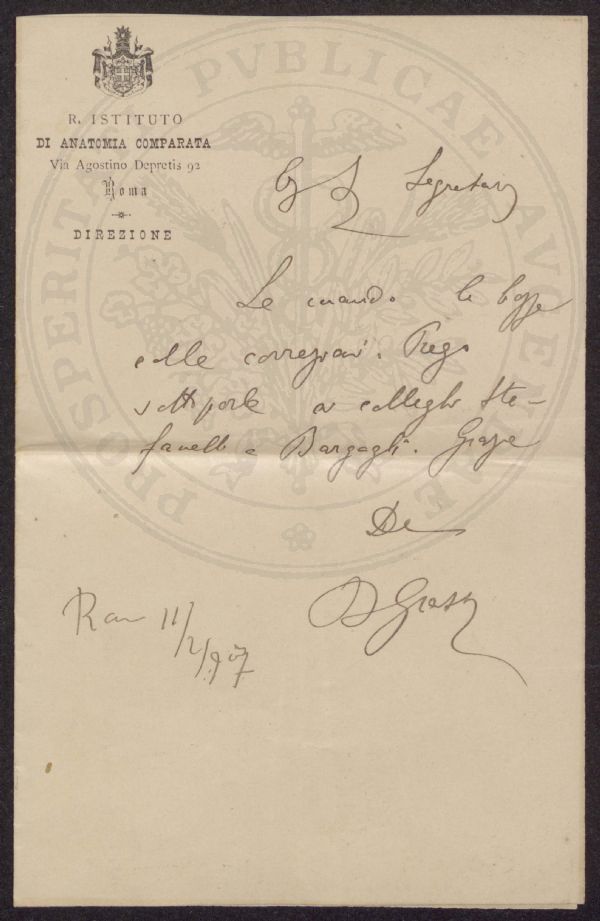 R. ISTITUTO
DI ANATOMIA COMPARATA
Via Agostino Depretis 92
Roma
DIREZIONE
Segretario
Le mando le bozze
colle correzioni. Prego
sottoporle ai colleghi Ste-
fanelli e Bargagli. Grazie
De
B Grassi
11/2/907
PROSPERITATI PVBLICAE AVGENDAE